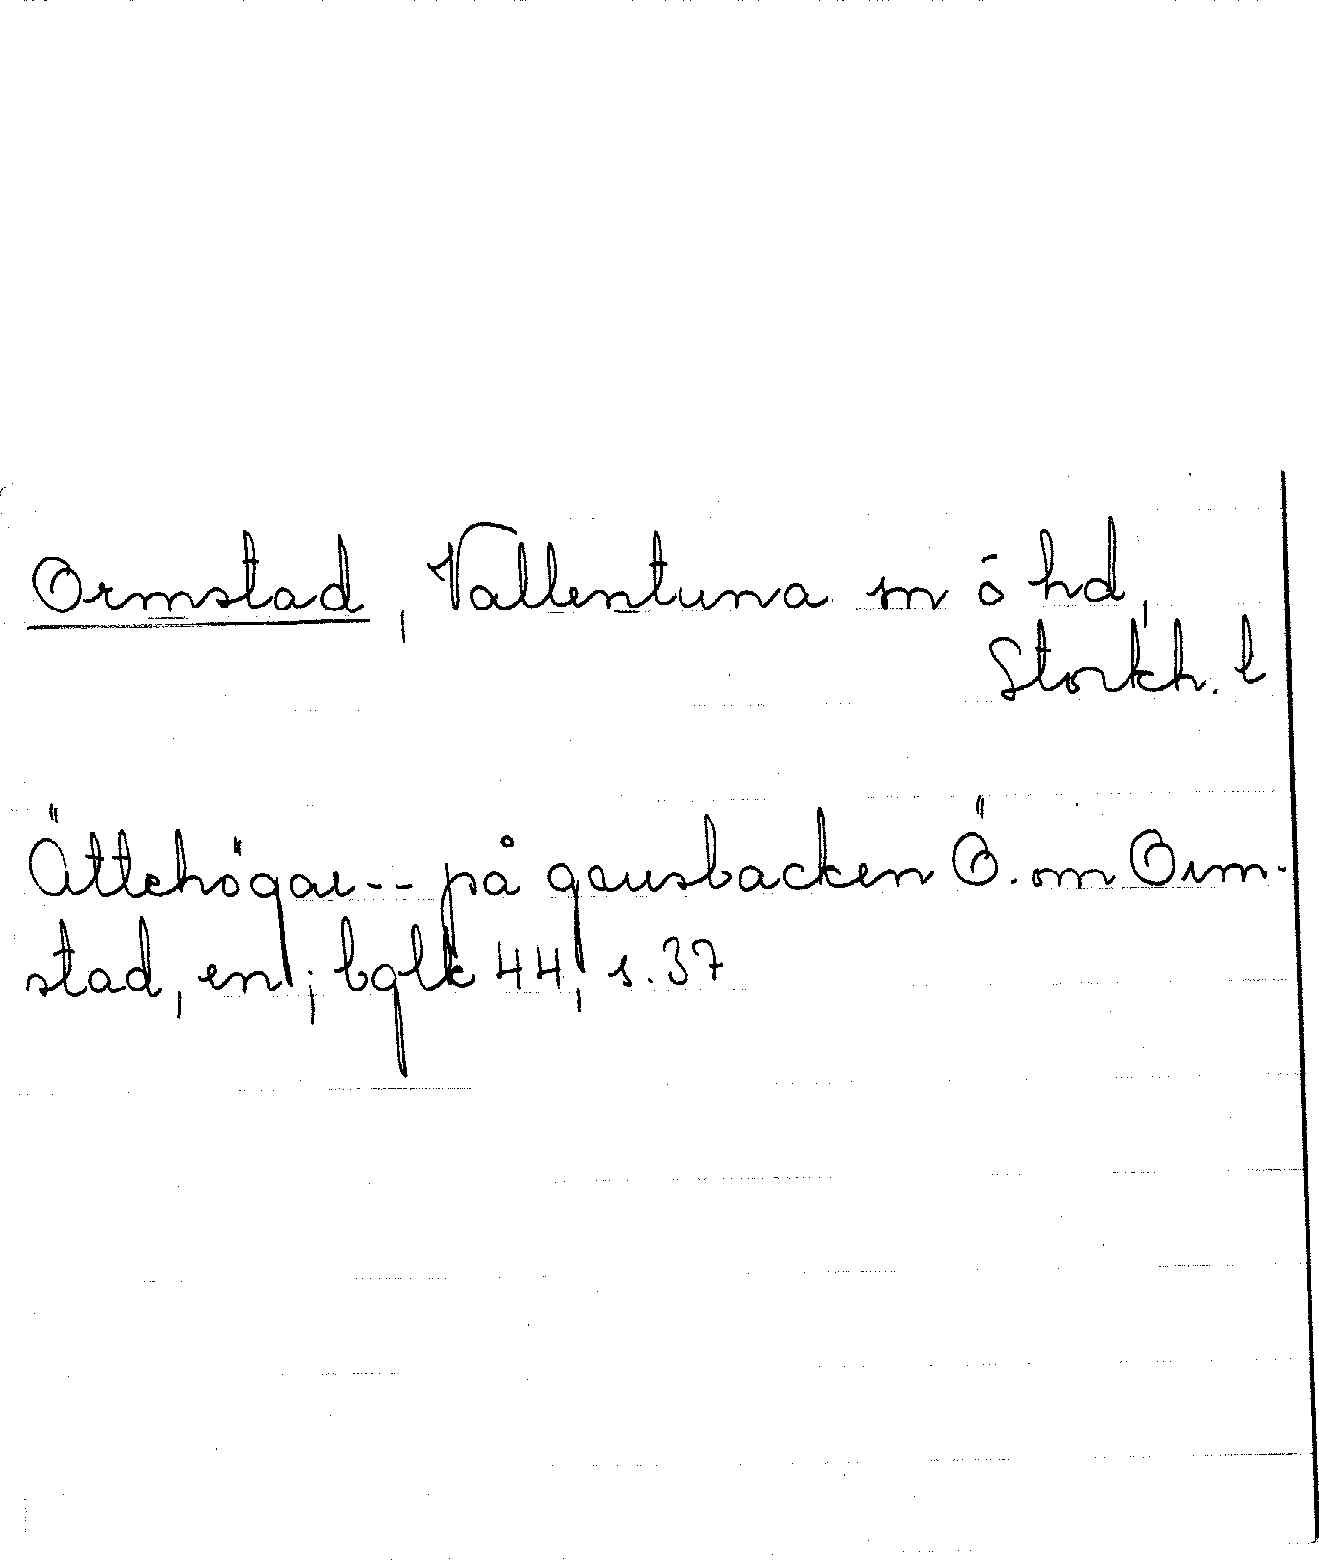 Ormstad, Vallentuna sn o hd,
Stockh. l
Ättehögar-- på grusbacken Ö. om Orm-
stad, en; bglk 44, s. 37